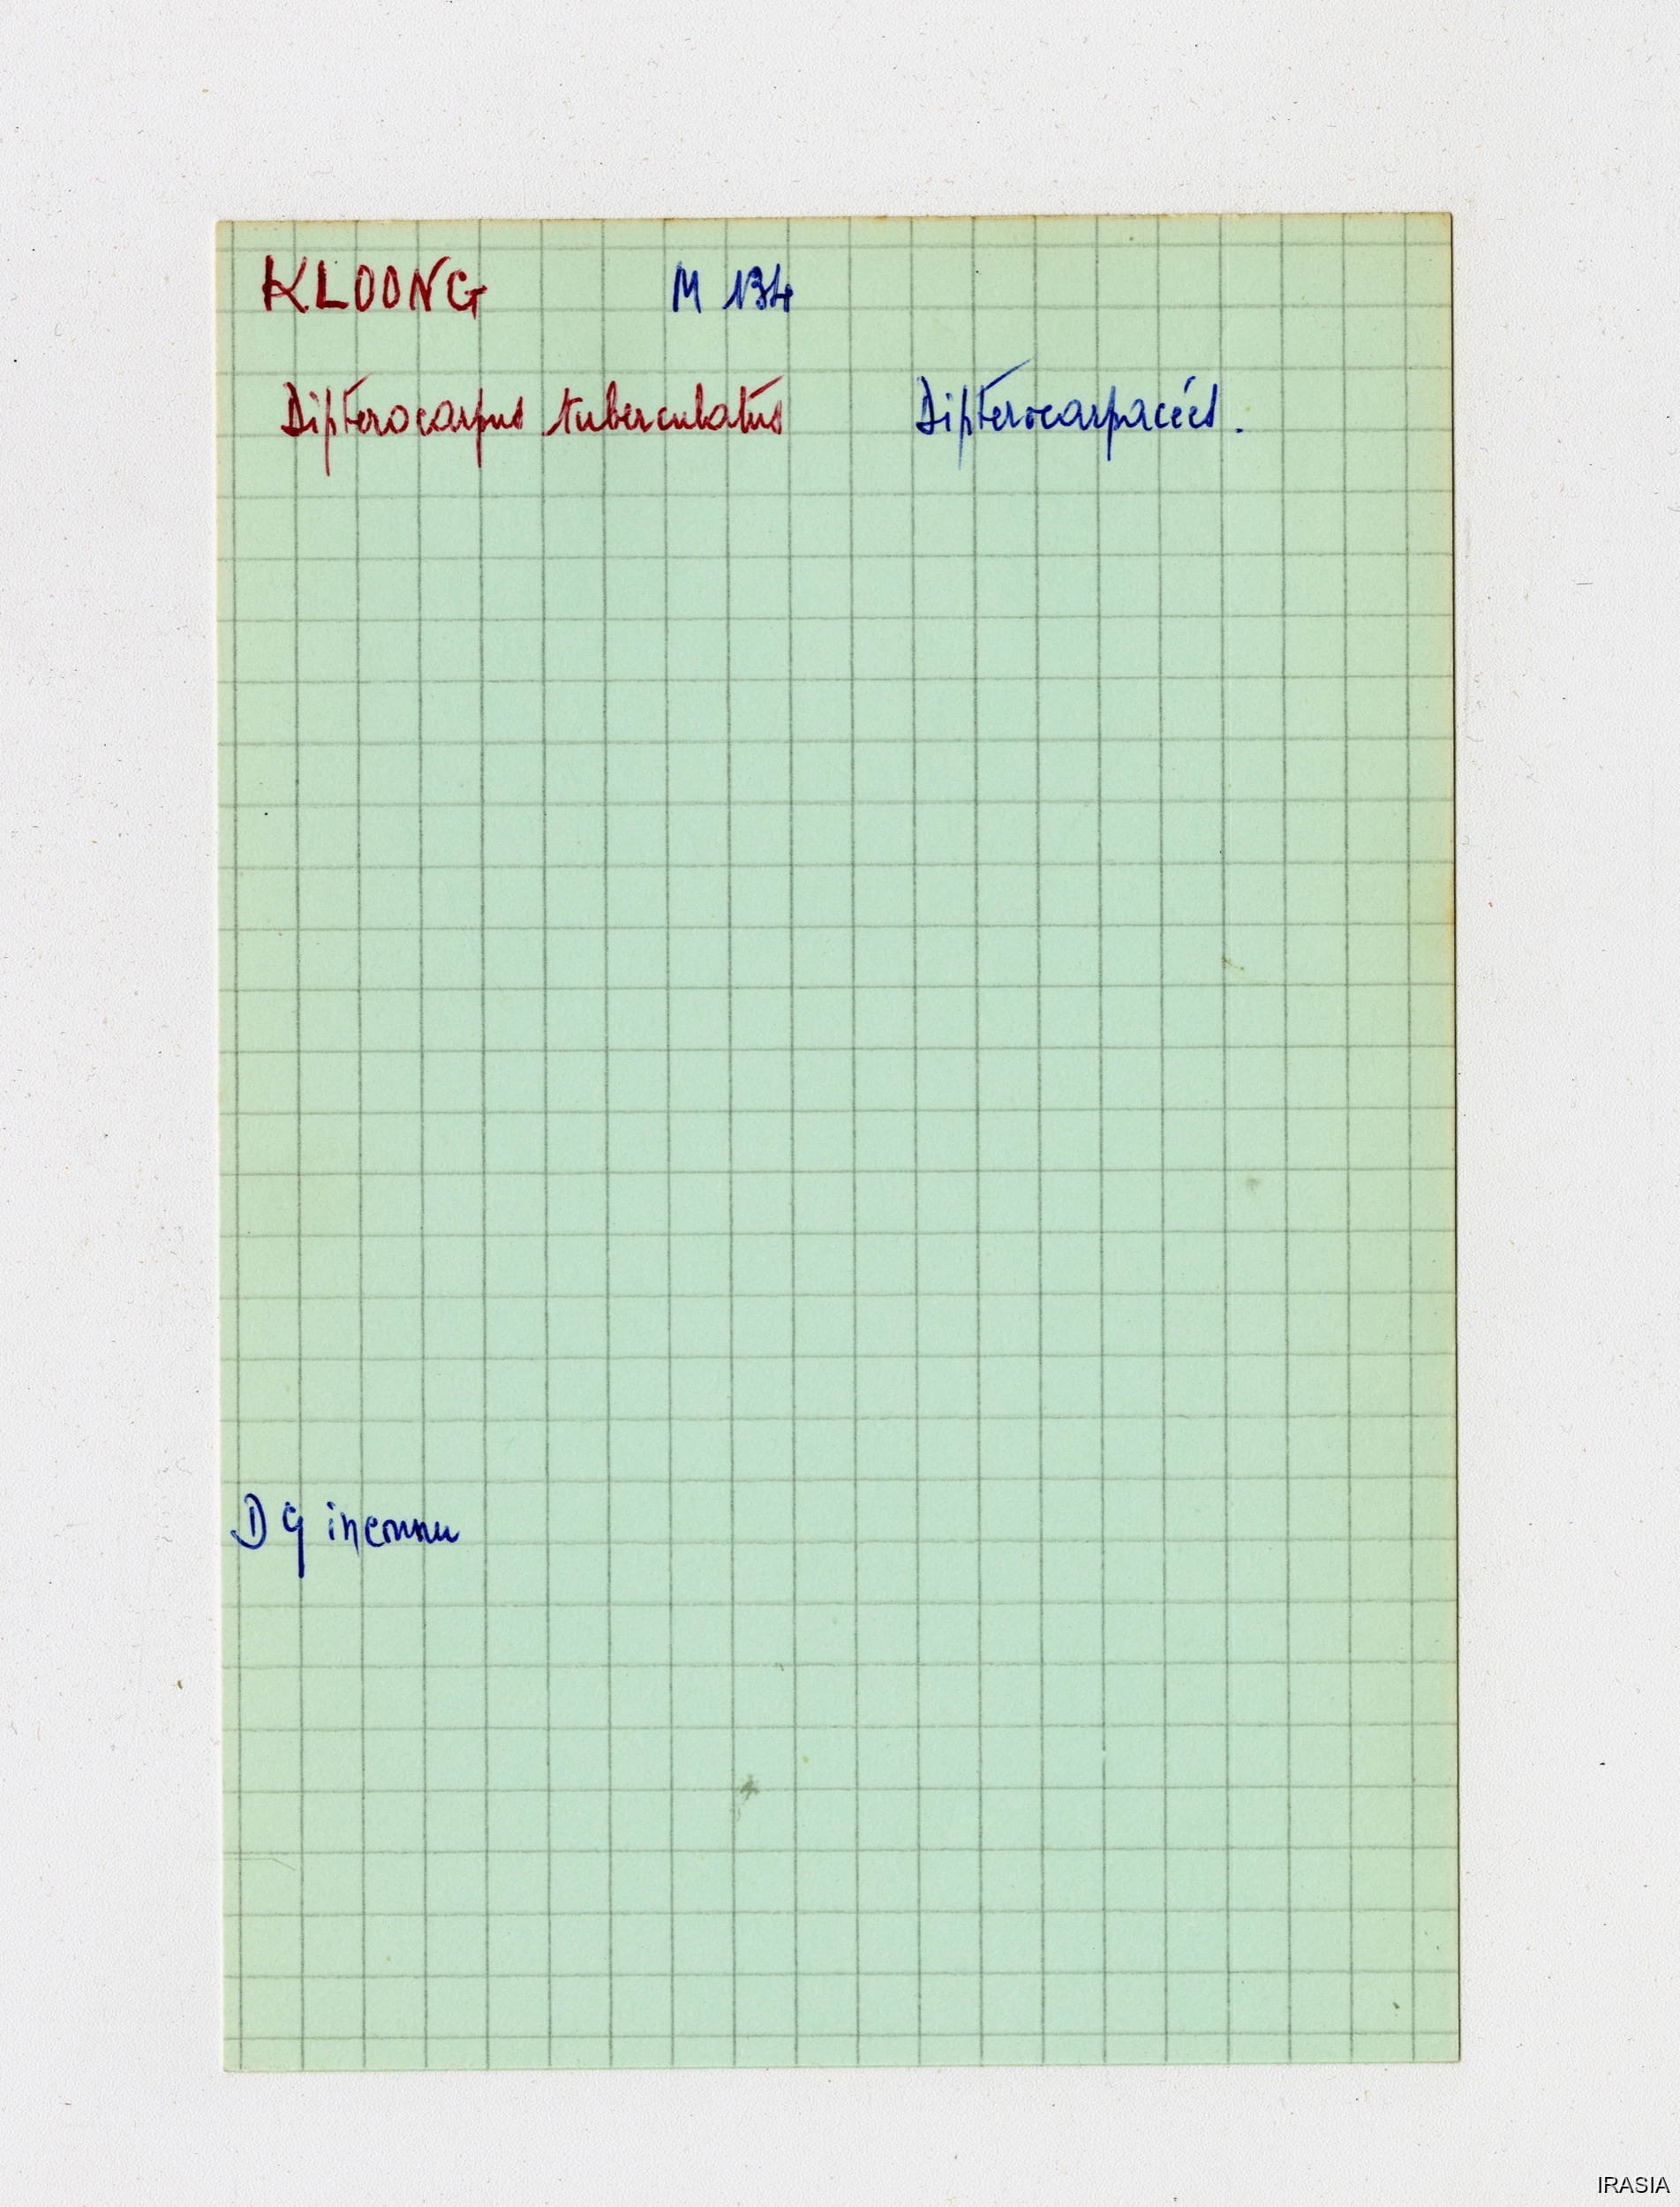 KLOONG M 134
Dipterocarpus tuberculatus Dipterocarpacées.
D g inconnu
IRASIA